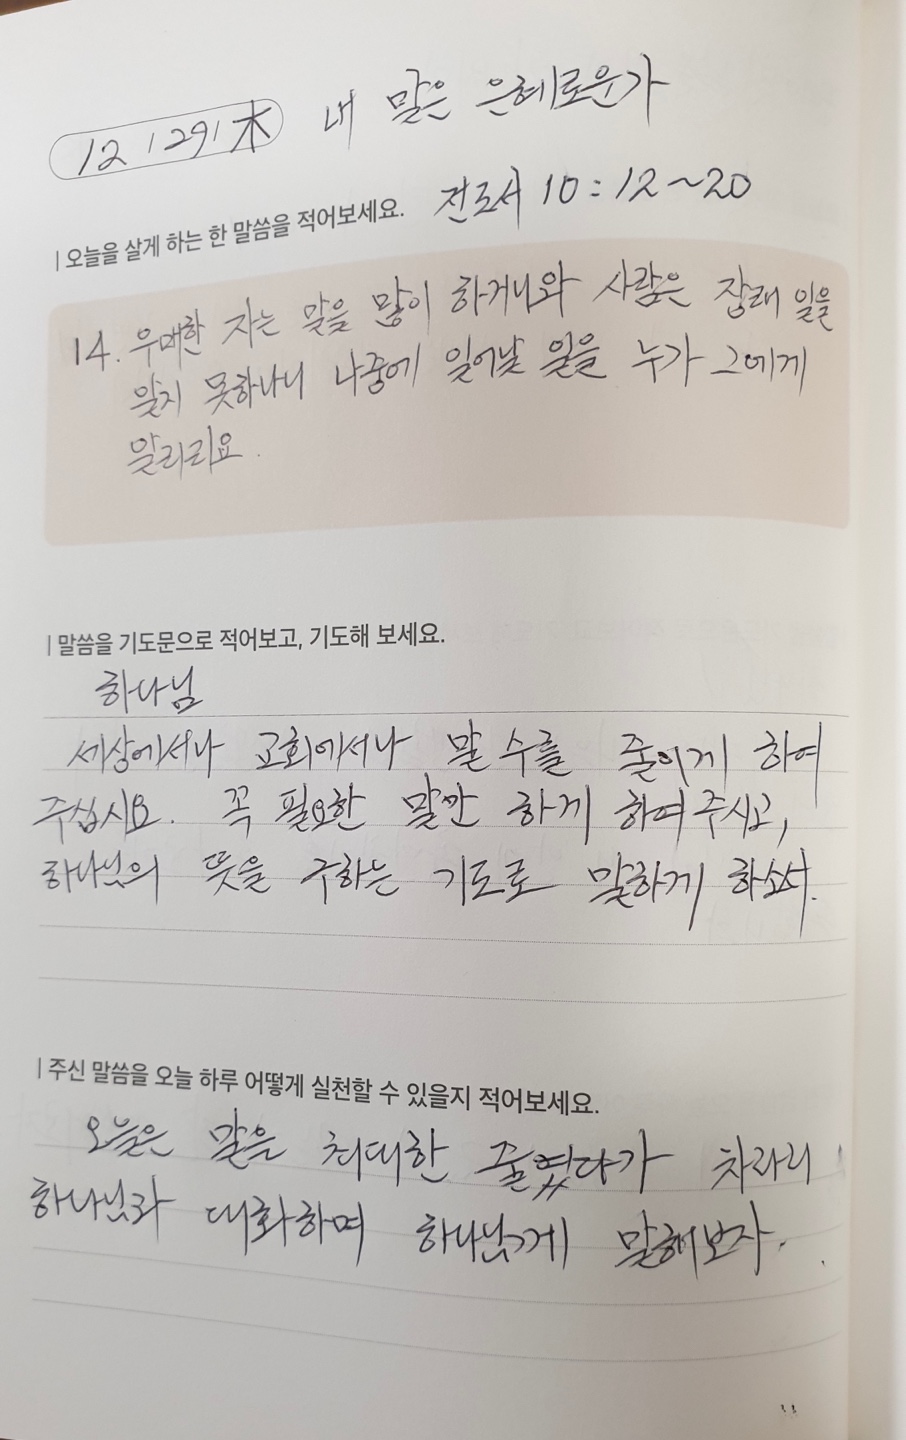 12 | 29 | 木 내 말은 은혜로운가
| 오늘을 살게 하는 한 말씀을 적어보세요. 전도서 10:12~20
14. 우매한 자는 말을 많이 하거니와 사람은 장래 일을
알지 못하나니 나중에 일어날 일을 누가 그에게
알리리요.
| 말씀을 기도문으로 적어보고, 기도해 보세요.
하나님
세상에서나 교회에서나 말 수를 줄이게 하여
주십시요. 꼭 필요한 말만 하게 하여주시고,
하나님의 뜻을 구하는 기도로 말하게 하소서.
| 주신 말씀을 오늘 하루 어떻게 실천할 수 있을지 적어보세요.
오늘은 말을 최대한 줄였다가 차라리
하나님과 대화하며 하나님께 말해보자.